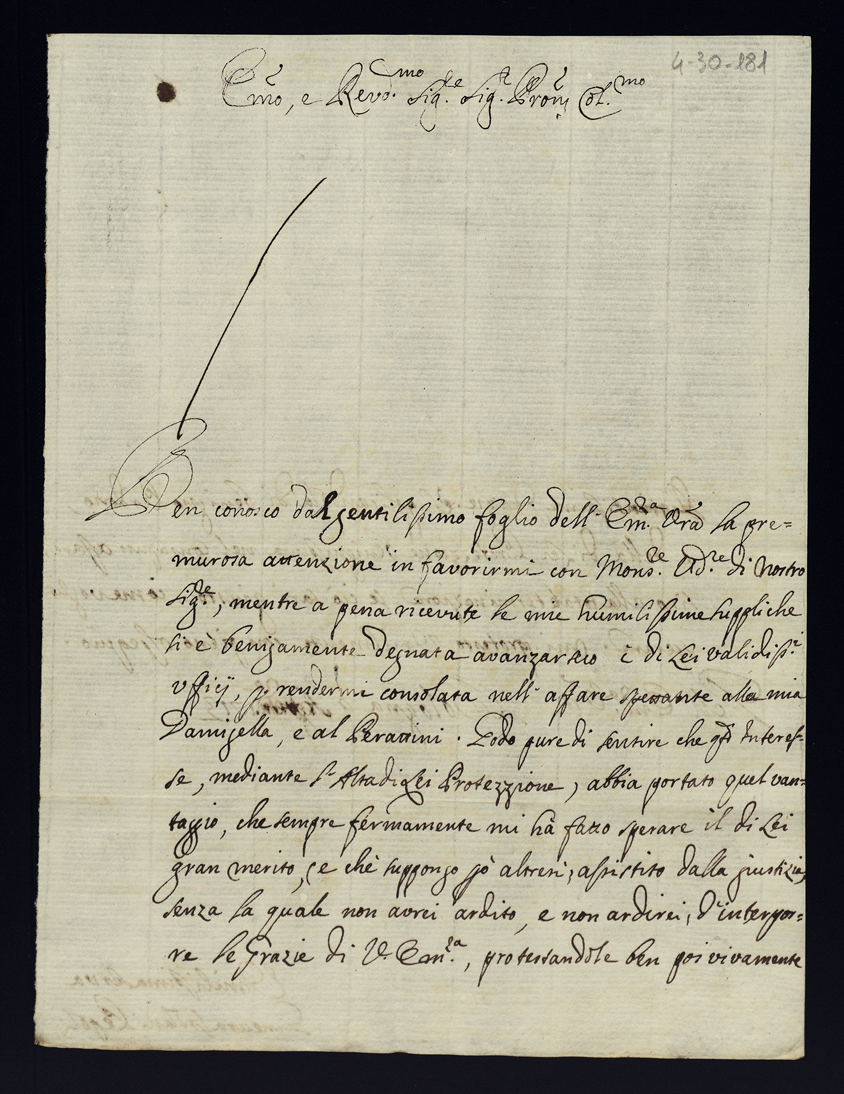 4-30-181
Em̃o, e Revd.mo Sig.re Sig.r Proñ Col.mo
Ben conosco dal gentilissimo foglio dell' Em.za Vrã la pre=
murosa attenzione in favorirmi con Mons.re Ud.re di Nostro
Sig.re, mentre a pena ricevute le mie humilissime suppliche
si è benignamente degnata avanzar seco i di Lei validiss.i
Ufficij, p rendermi consolata nell' affare spettante alla mia
Damigella, e al Perattini. Godo pure di sentire che qto Interes=
se, mediante l'Alta di Lei Protezzione, abbia portato quel van=
taggio, che sempre fermamente mi hà fatto sperare il di Lei
gran merito, e che suppongo pò altresi, assistito dalla giustizia,
senza la quale non avrei ardito, e non ardirei, d'interpor=
re le Grazie di V. Em.za, protestandole ben poi vivamente